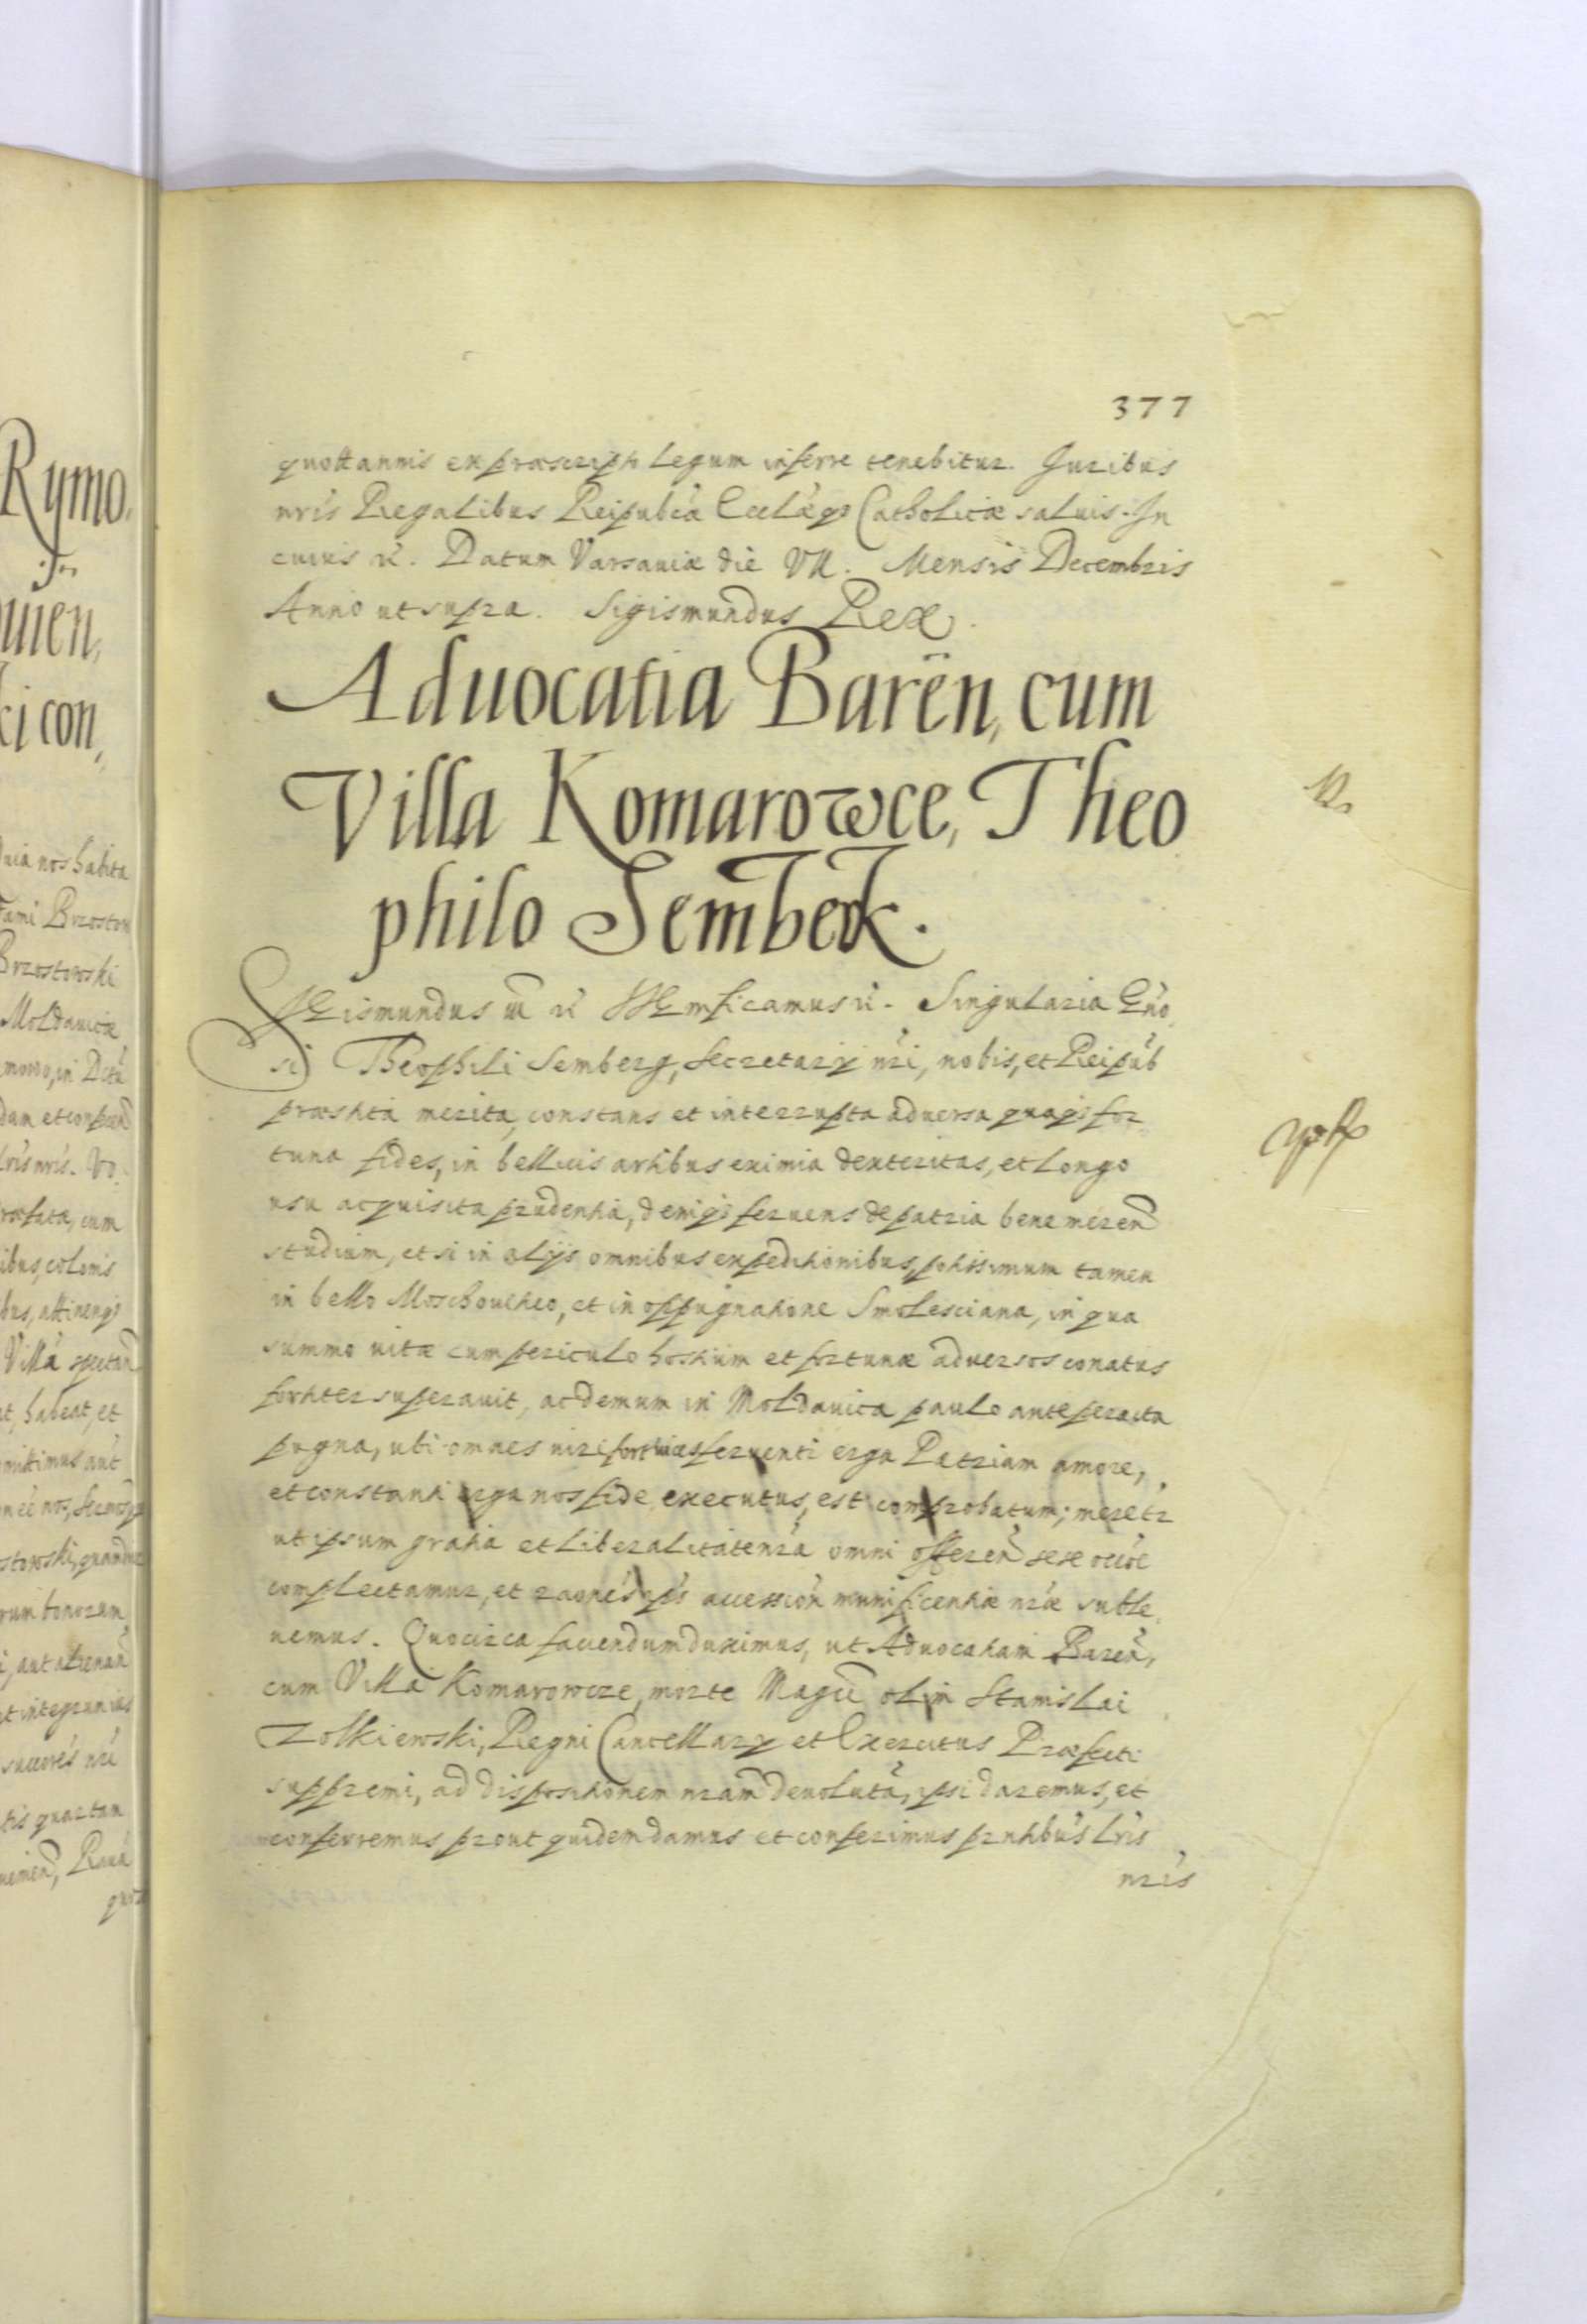 Rymo.
uien,
ki con,
nia nos habita
Fami Brzostow
Brzostowski
Moldauicæ
dam et
cum
ibus, colonis
Villa
at, habeat, et
mittimus aut
stowski,
rum bonorum
i, aut
at integrum ius
succorés nri
tis quartam
Raua
377
quottannis ex præscripti legum inferre tenebitur. Juribus
nris Regalibus Reipublcæ Ecclæqз Catholicæ saluis. In
cuius rei. Datum Varsauiæ die VII. Mensis Decembris
Anno ut supra. Sigismundus Rex.
Aduocatia Baren, cum
Villa Komarowce, Theo
philo Sembek.
Sigismundus III rc Significamus rc. Singularia Gno
si Theophili Semberg, Secretarij nri, nobis, et Reipub
præstita merita, constans et interrupta aduersa quaqз for
tuna fides, in bellicis artibus eximia dexteritas, et longo
usu acquisita prudentia, deniqз feruens de patria bene meren
studium, et si in alijs omnibus expeditionibus, potissimum tamen
in bello Moschouitico, et in oppugnatione Smolesciana, in qua
summo uitæ cum periculo hostium et fortunæ aduersos conatus
fortiter superauit, ac demum in Moldauica paulo ante peracta
pugna, ubi omnes uiri fortis uices feruenti erga Patriam amore,
et constanti erga nos fide executus, est comprobatum; meretr
ut ipsum gratia et liberalitate nra omni offeren sese occōe
complectamur, et raones ips accession munificentiæ nræ suble
uemus. Quocirca faciendum duximus, ut Aduocatiam Baren,
cum Villa Komarowcze, morte Magci olim Stanislai
Zolkiewski, Regni Cancellarij et Exercitus Præfecti
suppremi, ad dispositionem nram deuoluta, ipsi daremus, et
conferremus prout quidem damus et conferimus prntibus Lris
nris